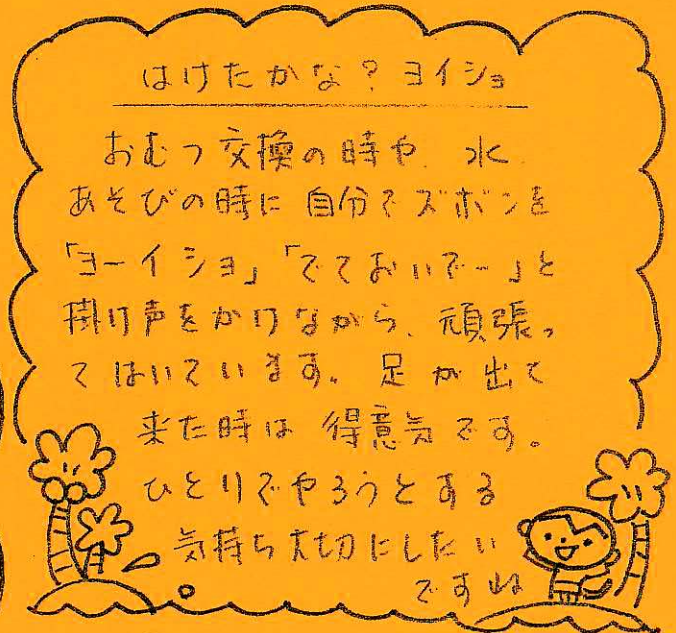 はけたかな？ヨイショ
おむつ交換の時や、水
あそびの時に自分でズボンを
「ヨーイショ」「でておいでー」と
掛け声をかけながら、頑張っ
てはいています。足が出て
来た時は得意気です。
ひとりでやろうとする
気持ち大切にしたい
ですね